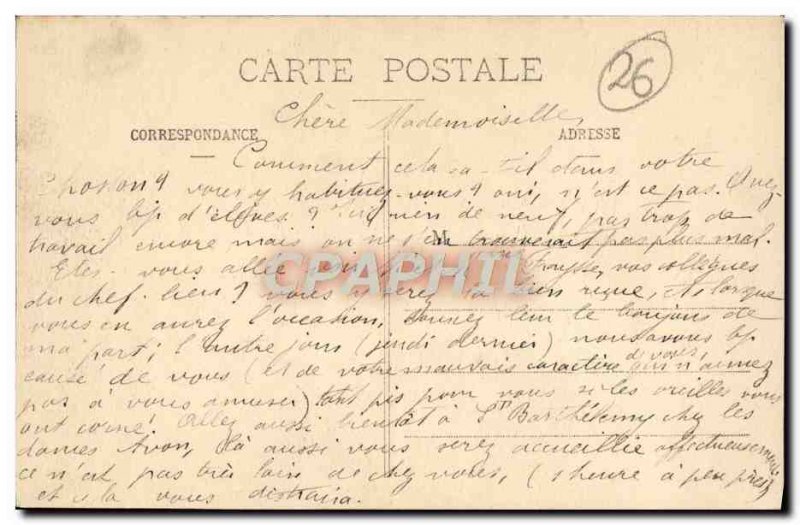 CARTE POSTALE
26
Chère Mademoiselle,
CORRESPONDANCE
ADRESSE
Comment cela va-t-il dans votre
vous y habituez-vous ? oui, n'est ce pas. Avez-
vous bp d'élèves ? rien de neuf, pas trop de
travail encore mais on ne s'en trouverait pas plus mal.
M
Etes-vous allée vos collègues
du chef-lieu ? vous y serez bien reçue, et lorsque
vous en aurez l'occasion, donnez leur le bonjour de
ma part ; l'autre jour (jeudi dernier) nous avons bp
causé de vous (et de votre mauvais caractère de vous, qui n'aimez
pas à vous amuser) tant pis pour vous si les oreilles vous
ont corné. Allez aussi bientôt à St Barthélemy chez les
dames Avon, là aussi vous serez accueillie affectueusement,
ce n'est pas très loin de chez vous, (1 heure à peu près)
et cela vous distraira.
Cartes-Postales.com